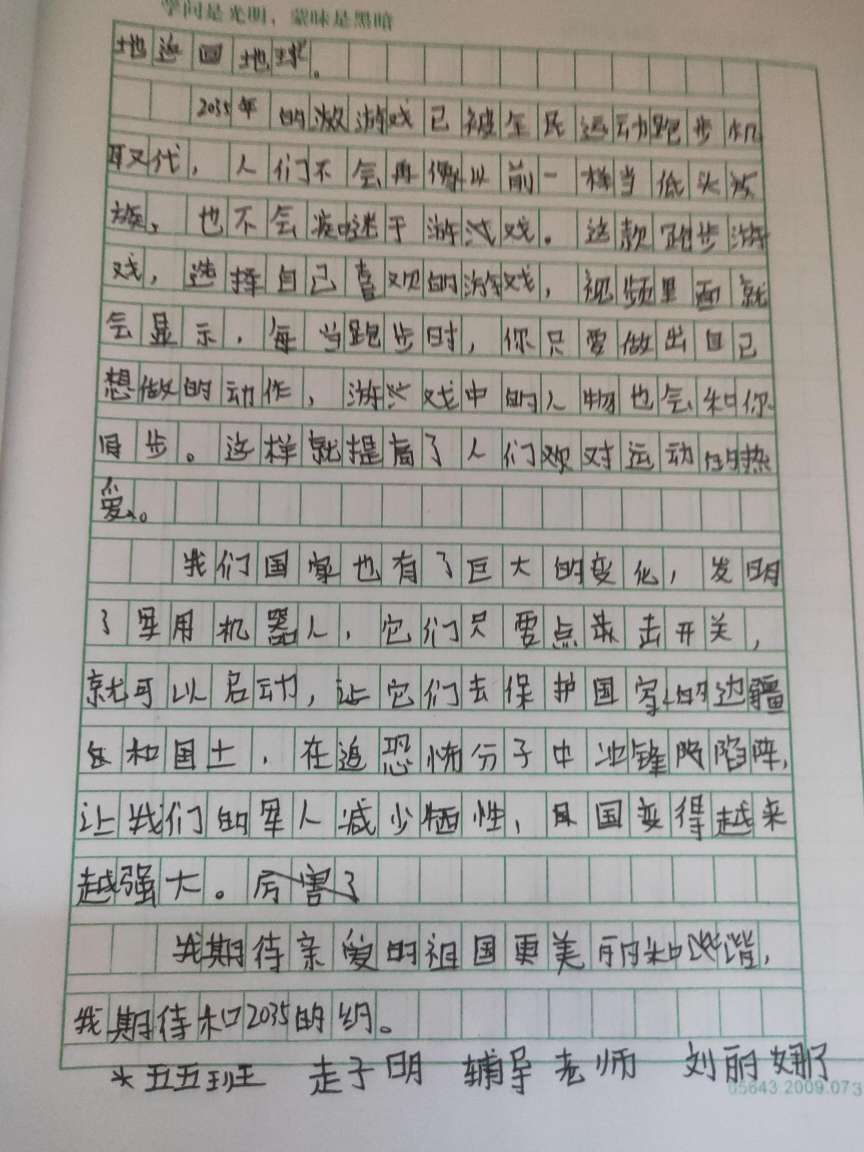 学问是光明，蒙昧是黑暗
地返回地球。
2035年的游戏已被全民运动跑步机
取代，人们不会再像以前一样当低头
族，也不会沉迷于游戏。这款跑步游
戏，选择自己喜欢的游戏，视频里面就
会显示，每当跑步时，你只要做出自己
想做的动作，游戏中的人物也会和你
同步。这样就提高了人们对运动的热
爱。
我们国家也有了巨大的变化，发明
了军用机器人，它们只需点击开关，
就可以启动，让它们去保护国家的边疆
和国土，在追恐怖分子中冲锋陷阵，
让我们的军人减少牺牲，国变得越来
越强大。
我期待亲爱的祖国更美丽和谐，
我期待和2035的约。
*五五班 走子明 辅导老师 刘丽娜
05643.2009.073